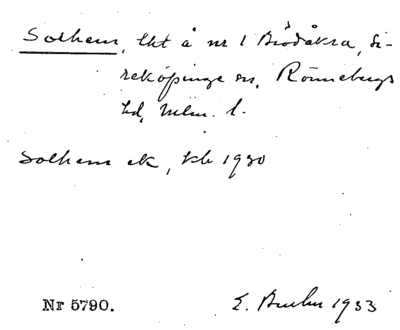 Solhem, lht å nr 1 Brödåkra, Si-
reköpinge sn, Rönnebergs
hd, Mlm. l.
Solhem ek, kb 1930
Nr 5790. E. 1933